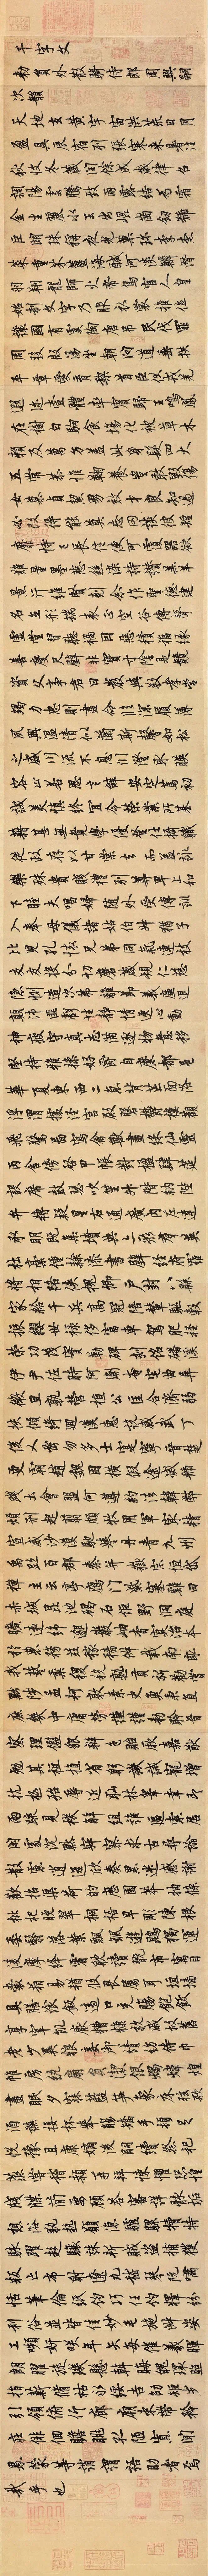 千字文
敕員外散騎侍郎周興嗣
次韻
天地玄黃宇宙洪荒日月
盈昃辰宿列張寒來暑往
秋收冬藏閏餘成歲律呂
調陽雲騰致雨露結為霜
金生麗水玉出崑岡劍號
巨闕珠稱夜光菓珍李柰
菜重芥薑海鹹河淡鱗潛
羽翔龍師火帝鳥官人皇
始制文字乃服衣裳推位
讓國有虞陶唐弔民伐罪
周發殷湯坐朝問道垂拱
平章愛育黎首臣伏戎羌
遐邇壹體率賓歸王鳴鳳
在樹白駒食場化被草木
賴及萬方蓋此身髮四大
五常恭惟鞠養豈敢毀傷
女慕貞潔男效才良知過
必改得能莫忘罔談彼短
靡恃己長信使可覆器欲
難量墨悲絲染詩讚羔羊
景行維賢剋念作聖德建
名立形端表正空谷傳聲
虛堂習聽禍因惡積福緣
善慶尺璧非寶寸陰是競
資父事君曰嚴與敬孝當
竭力忠則盡命臨深履薄
夙興溫凊似蘭斯馨如松
之盛川流不息淵澄取暎
容止若思言辭安定篤初
誠美慎終宜令榮業所基
藉甚無竟學優登仕攝職
從政存以甘棠去而益詠
樂殊貴賤禮別尊卑上和
下睦夫唱婦隨外受傅訓
入奉母儀諸姑伯叔猶子
比兒孔懷兄弟同氣連枝
交友投分切磨箴規仁慈
隱惻造次弗離節義廉退
顛沛匪虧性靜情逸心動
神疲守真志滿逐物意移
堅持雅操好爵自縻都邑
華夏東西二京背芒面洛
浮渭據涇宮殿盤鬱樓觀
飛驚圖寫禽獸畫綵仙靈
丙舍傍啟甲帳對楹肆筵
設席鼓瑟吹笙升階納陛
弁轉疑星右通廣內左達
承明既集墳典亦聚群英
杜槀鍾隸漆書壁經府羅
將相路俠槐卿戶封八縣
家給千兵高冠陪輦驅轂
振纓世祿侈富車駕肥輕
策功茂實勒碑刻銘磻溪
伊尹佐時阿衡奄宅曲阜
微旦孰營桓公匡合濟弱
扶傾綺迴漢惠說感武丁
俊乂密勿多士寔寧晉楚
更霸趙魏困橫假途滅虢
踐土會盟何遵約法韓弊
煩刑起翦頗牧用軍最精
宣威沙漠馳譽丹青九州
禹跡百郡秦并嶽宗恒岱
禪主云亭鴈門紫塞雞田
赤城昆池碣石鉅野洞庭
曠遠綿邈巖岫杳冥治本
於農務茲稼穡俶載南畝
我藝黍稷稅熟貢新勸賞
黜陟孟軻敦素史魚秉直
庶幾中庸勞謙謹勑聆音
察理鑑貌辨色貽厥嘉猷
勉其祗植省躬譏誡寵增
抗極殆辱近恥林皋幸即
兩疏見機解組誰逼索居
閑處沉默寂寥求古尋論
散慮逍遙欣奏累遣慼謝
歡招渠荷的歷園莽抽條
枇杷晚翠梧桐早彫陳根
委翳落葉飄颻遊鵾獨運
凌摩絳霄耽讀翫市寓目
囊箱易輶攸畏屬耳垣牆
具膳飡飯適口充腸飽飫
享宰飢厭糟糠親戚故舊
老少異糧妾御績紡侍巾
帷房紈扇圓潔銀燭煒煌
晝眠夕寐藍笋象床弦歌
酒讌接杯舉觴矯手頓足
悅豫且康嫡後嗣續祭祀
蒸嘗稽顙再拜悚懼恐惶
牋牒簡要顧答審詳骸垢
想浴執熱願涼驢騾犢特
駭躍超驤誅斬賊盜捕獲
叛亡布射遼丸嵇琴阮嘯
恬筆倫紙鈞巧任釣釋紛
利俗並皆佳妙毛施淑姿
工嚬妍咲年矢每催羲暉
朗曜璇璣懸斡晦魄環照
指薪脩祜永綏吉劭矩步
引領俯仰廊廟束帶矜
莊徘徊瞻眺孤陋寡聞
愚蒙等誚謂語助者焉
哉乎也